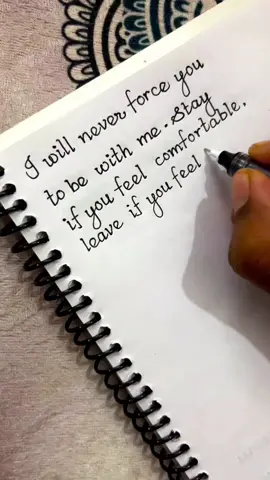 I will never force you
to be with me. Stay
if you feel comfortable,
leave if you feel